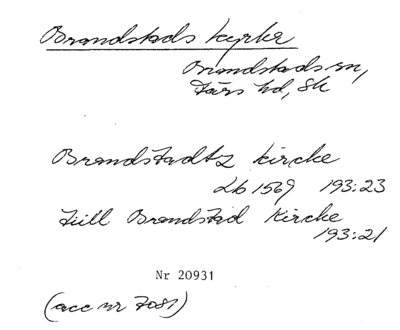 Brandstads kyrka
Brandstads sn,
Färs hd, Sk
Brandstadtz kircke
Lb 1569 193:23
till Brandstad Kircke
193:21
Nr 20931
(acc nr 7081)